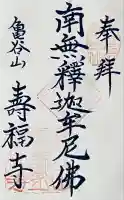 奉拜
南無釋迦牟尼佛
亀谷山
壽福寺